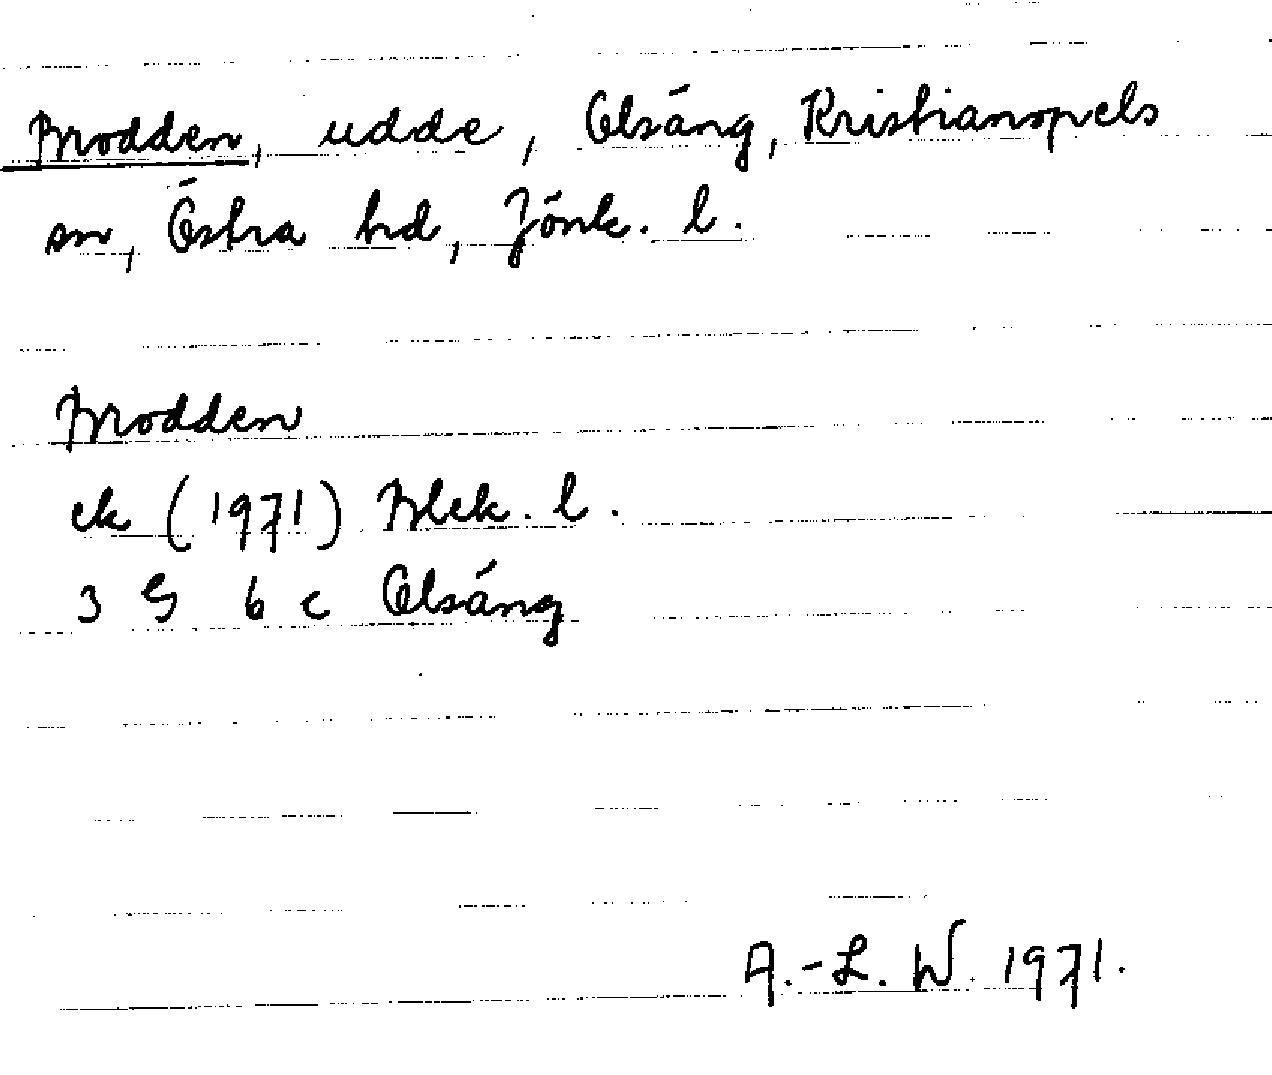 Brodden, udde, Olsäng, Kristianopels
sn, Östra hd, Jönk. l.
Brodden
ek (1971) Blek. l.
3 G 6 c Olsäng
A.-L. W. 1971.